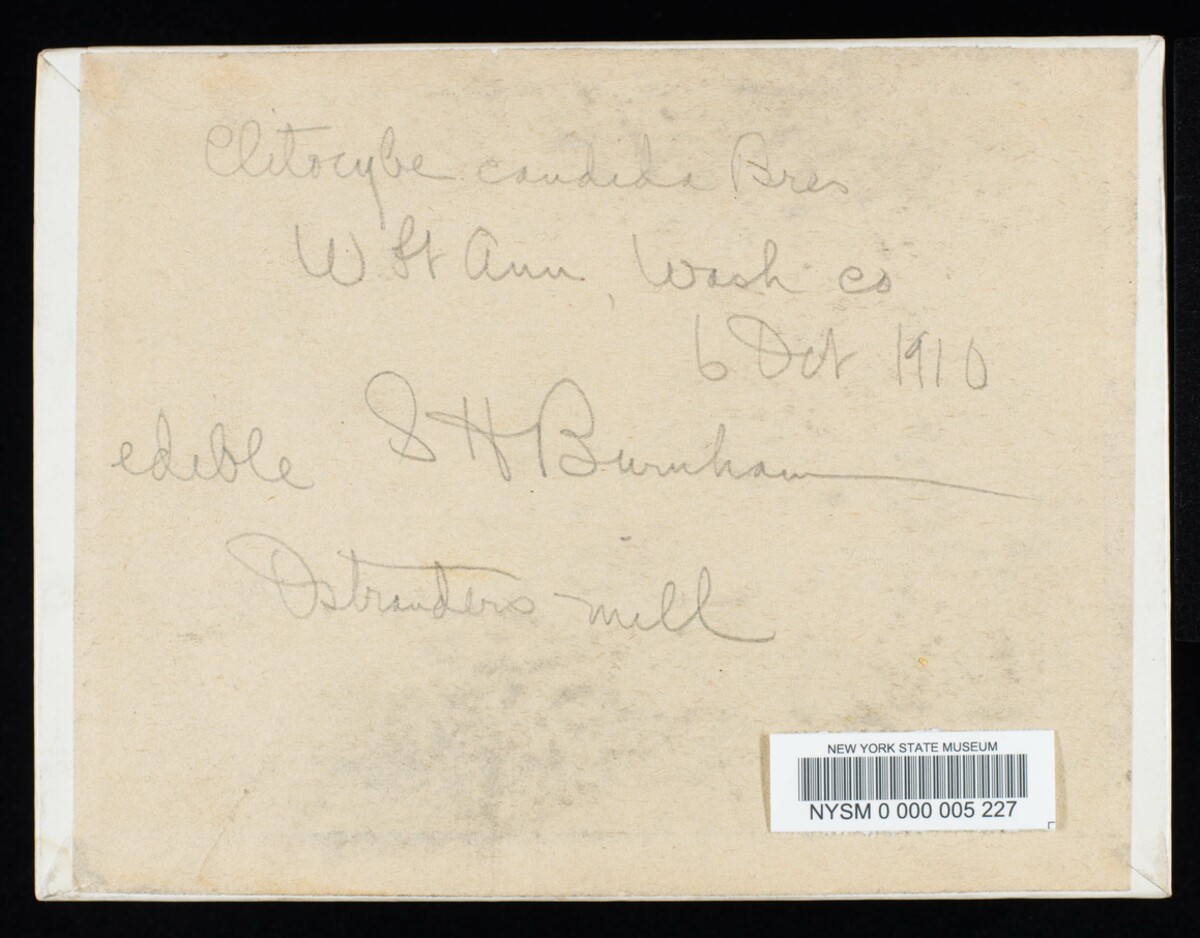 Clitocybe candida Bres
W Ft Ann, Wash co
6 Oct 1910
edible S H Burnham
Ostranders mill
NEW YORK STATE MUSEUM
NYSM 0 000 005 227